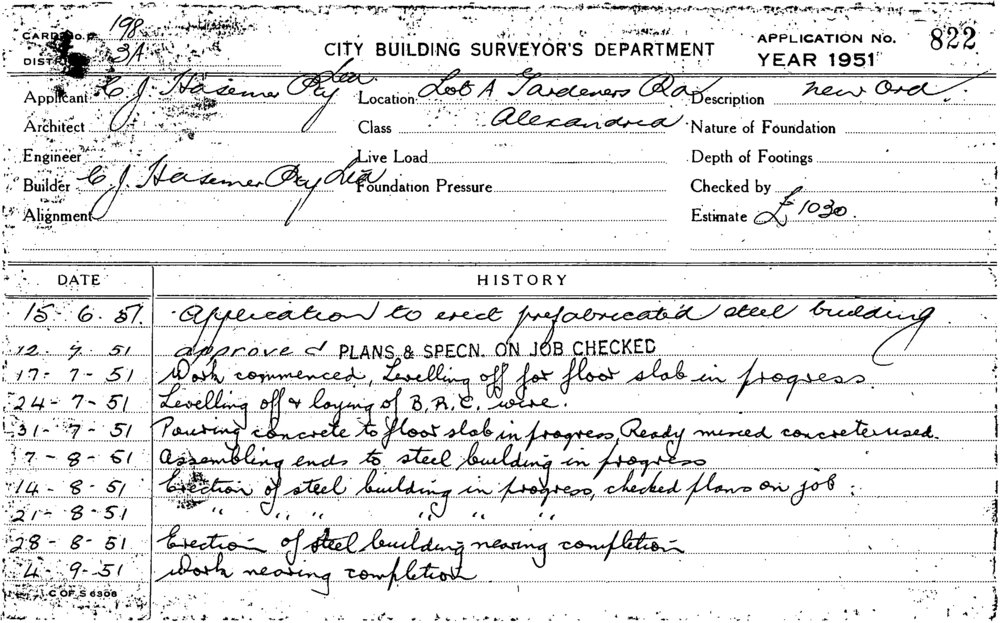 CARD No. 198
DISTRICT 3A
CITY BUILDING SURVEYOR'S DEPARTMENT
APPLICATION No. 822
YEAR 1951
Applicant C J. Hasemer Pty Ltd
Location Lot A Gardeners Rd
Description new Ord.
Architect
Class Alexandria
Nature of Foundation
Engineer
Live Load
Depth of Footings
Builder C J. Hasemer Pty Ltd
Foundation Pressure
Checked by
Alignment
Estimate £1030.
DATE HISTORY
15 . 6 . 51. Application to erect prefabricated steel building.
12 . 7 . 51 approved PLANS & SPECN. ON JOB CHECKED
17 - 7 - 51 Work commenced, Levelling off for floor slab in progress.
24 - 7 - 51 Levelling off & laying of B.R.C. wire.
31 - 7 - 51 Pouring concrete to floor slab in progress, Ready mixed concrete used.
7 - 8 - 51 Assembling ends to steel building in progress
14 - 8 - 51 Erection of steel building in progress, checked plans on job :
21 - 8 - 51 " " " " " "
28 - 8 - 51 Erection of steel building nearing completion
4 - 9 - 51 Work nearing completion
C OF S 6306